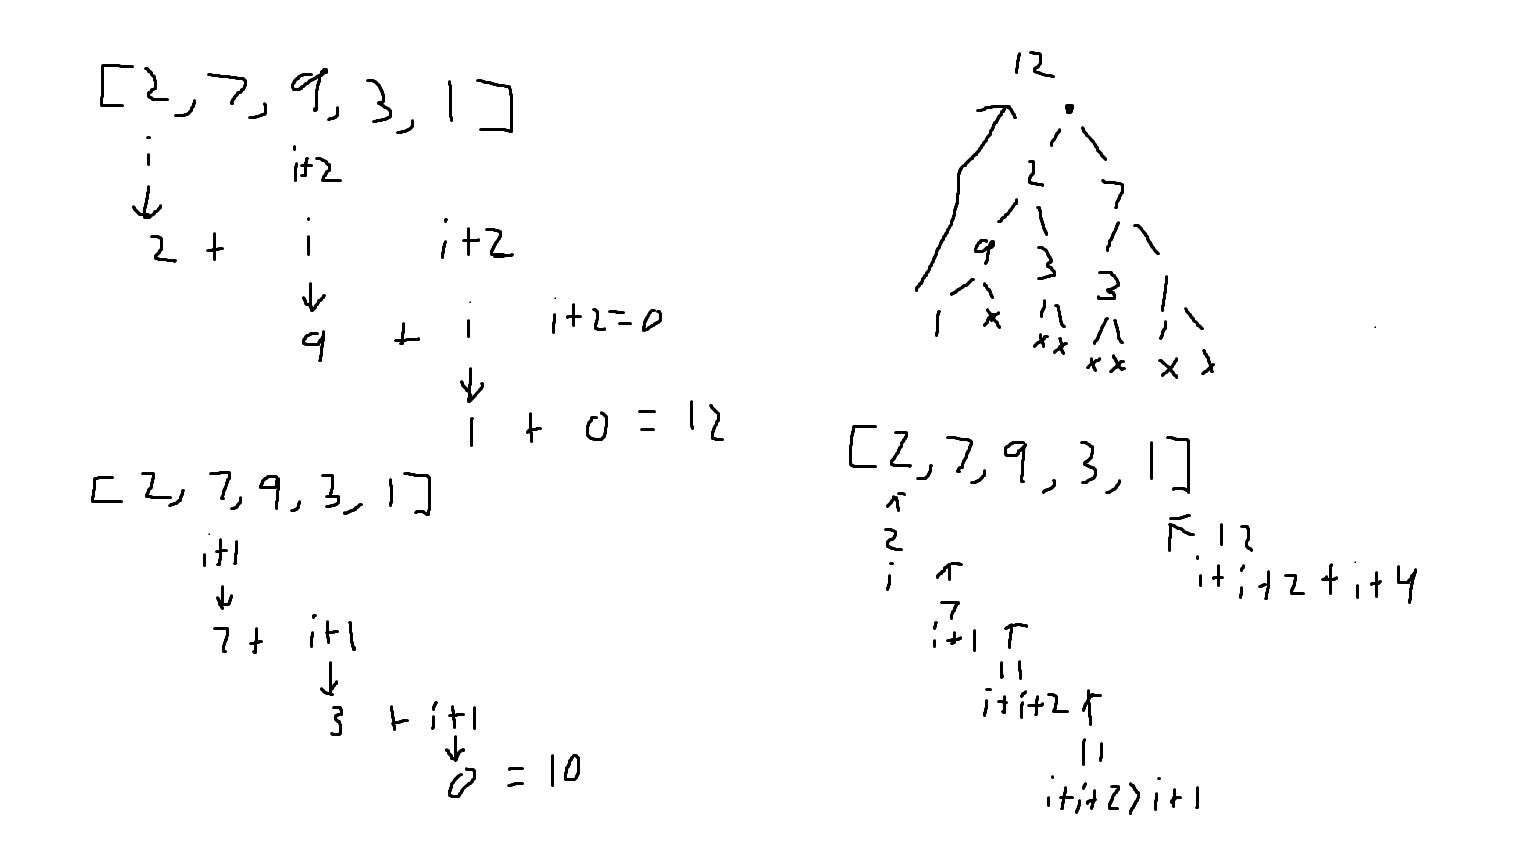 [2, 7, 9, 3, 1]
i i+2
2 + i i+2
9 + i i+2=0
1 + 0 = 12
[2, 7, 9, 3, 1]
i+1
7 + i+1
3 + i+1
0 = 10
12
2 7
9 3 3 1
1 x x x x x x x
[2, 7, 9, 3, 1]
2 12
i i+i+2+i+4
7
i+1
11
i+i+2
11
i+i+2>i+1